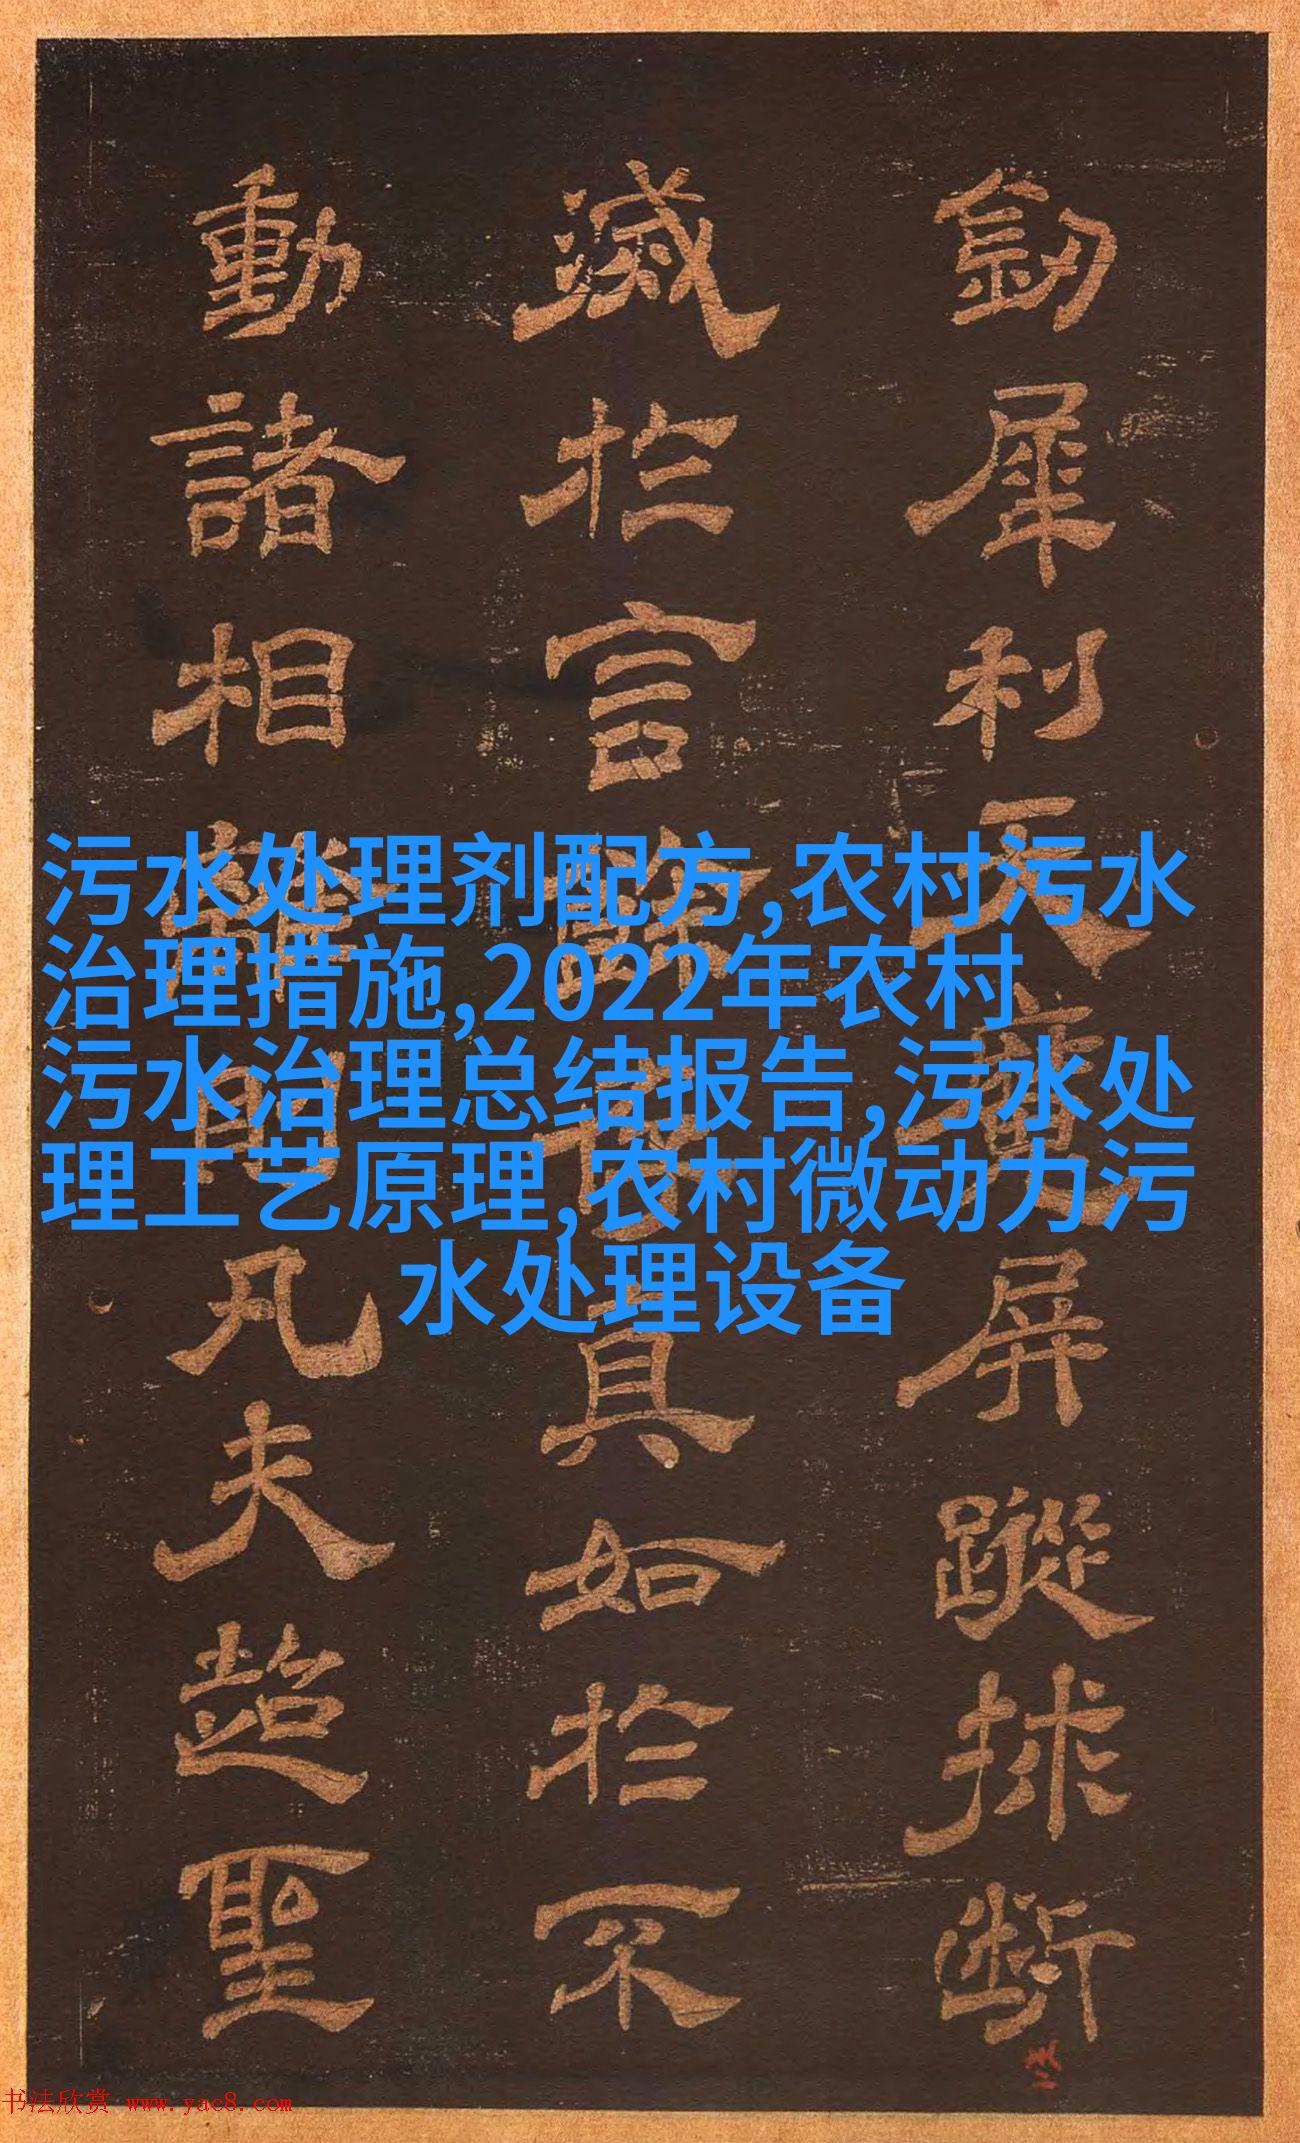 污水处理剂配方,农村污水
治理措施,2022年农村
污水治理总结报告,污水处
理工艺原理,农村微动力污
水处理设备
劒犀利天魔屏蹤断
滅於言詮真如於不
動諸相離即凡夫超聖
书法欣赏 www.yac8.com